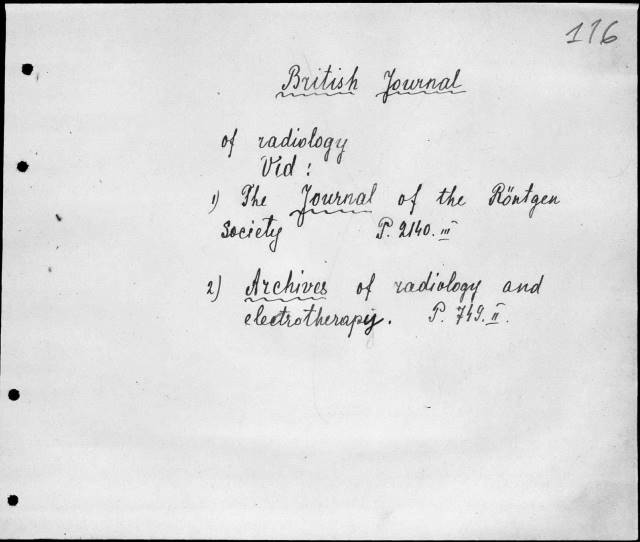 116
British Journal
of radiology
Vid :
1) The Journal of the Röntgen
Society P. 2140.III
2) Archives of radiology and
electrotherapy. P. 749.II.